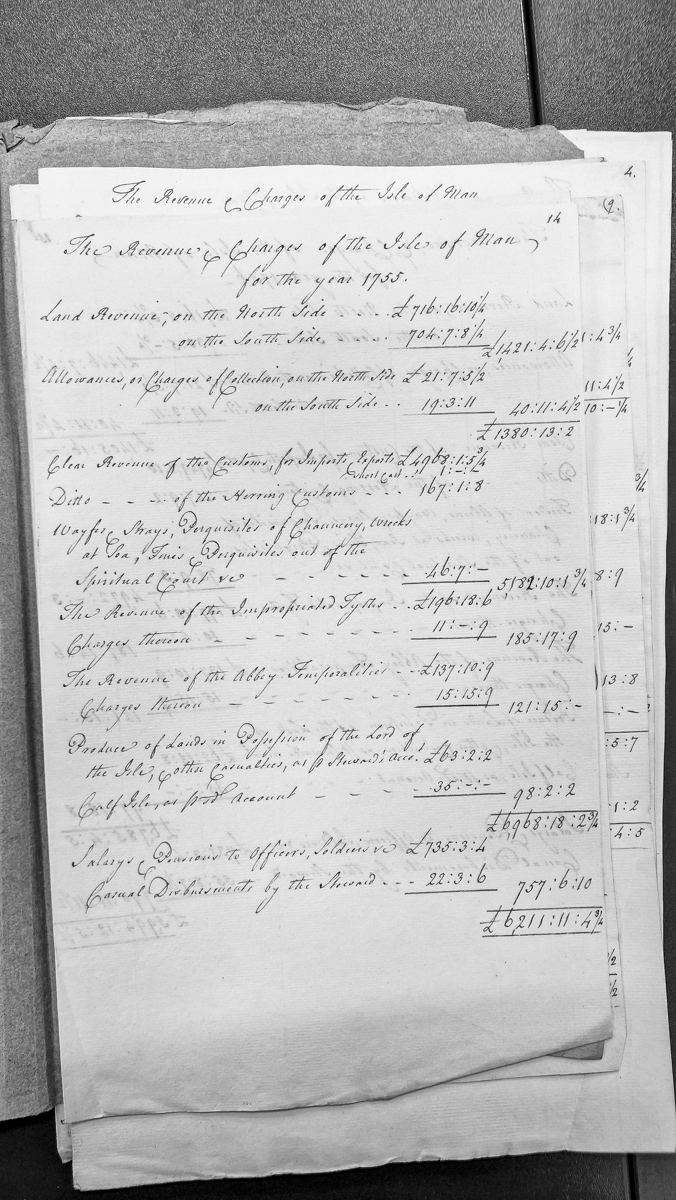 The Revenue & Charges of the Isle of Man
4.
9.
14
The Revenue & Charges of the Isle of Man
for the year 1755.
Land Revenue, on the North Side - - £716:16:10¼
on the South Side - - 704:7:8¼ £1421:4:6½
Allowances, or Charges of Collection, on the North Side £21:7:5½
on the South Side - - 19:3:11 40:11:4½
£1380:13:2
Clear Revenue of the Customs, for Imports & Exports £4968:1:5¾
Short Cast - - 1:-:-
Ditto - - - of the Herring Customs - - - - 167:1:8
Wayfes & Strays, Perquisites of Chancery, Wrecks
at Sea, Fines & Perquisites out of the
Spiritual Court &c - - - - - - 46:7:- 5182:10:1¾
The Revenue of the Impropriated Tyths - - £196:18:6
Charges thereon - - - - - - - 11:-:9 185:17:9
The Revenue of the Abbey Temporalities - - £137:10:9
Charges thereon - - - - - - 15:15:9 121:15:-
Produce of Lands in Possession of the Lord of
the Isle, & other Casualties, as p Steward's Acct. £63:2:2
Calf Isle, as p sd. Account - - - - 35:-:- 98:2:2
£6968:18:2¾
Salarys & Pensions to Officers, Soldiers &c £735:3:4
Casual Disbursments by the Steward - - - 22:3:6 757:6:10
£6,211:11:4¾
:4¾
¼
11:4½
10:-¼
¾
18:1¾
8:9
15:-
13:8
-:-
:5:7
1:2
4:5
½
½